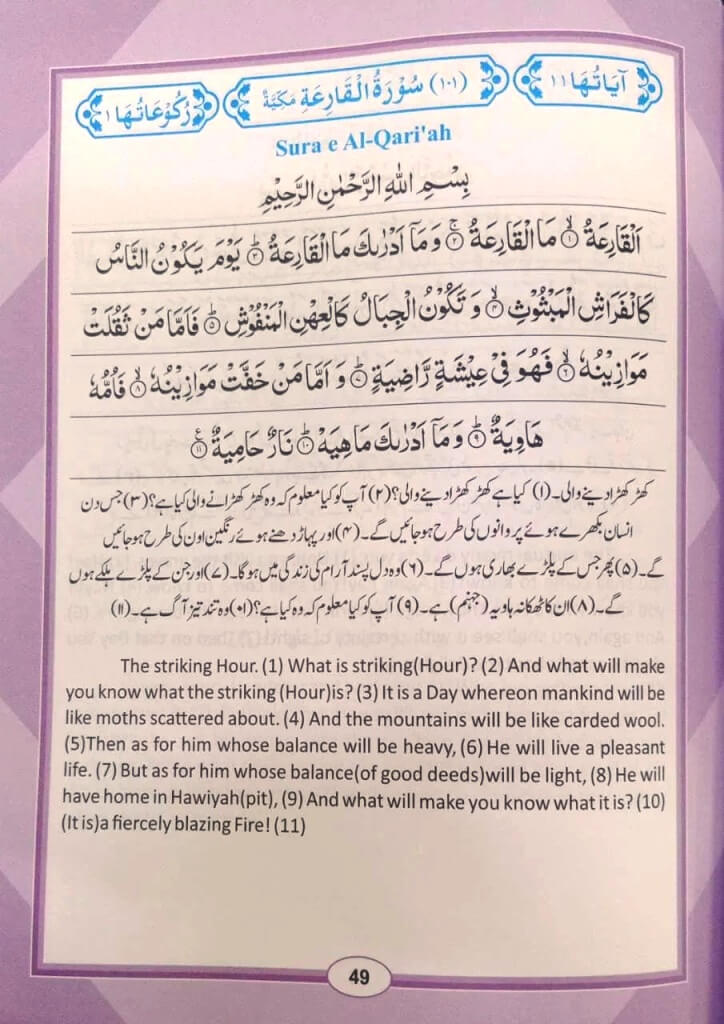 اٰيَاتُهَا ١١
(١٠١) سُوْرَةُ الْقَارِعَةِ مَكِّيَّةٌ
رُكُوْعَاتُهَا ١
Sura e Al-Qari'ah
بِسْمِ اللّٰهِ الرَّحْمٰنِ الرَّحِيْمِ
اَلْقَارِعَةُ ۙ﴿١﴾ مَا الْقَارِعَةُ ۚ﴿٢﴾ وَ مَاۤ اَدْرٰىكَ مَا الْقَارِعَةُ ؕ﴿٣﴾ يَوْمَ يَكُوْنُ النَّاسُ
كَالْفَرَاشِ الْمَبْثُوْثِ ۙ﴿٤﴾ وَ تَكُوْنُ الْجِبَالُ كَالْعِهْنِ الْمَنْفُوْشِ ؕ﴿٥﴾ فَاَمَّا مَنْ ثَقُلَتْ
مَوَازِيْنُهٗ ۙ﴿٦﴾ فَهُوَ فِيْ عِيْشَةٍ رَّاضِيَةٍ ؕ﴿٧﴾ وَ اَمَّا مَنْ خَفَّتْ مَوَازِيْنُهٗ ۙ﴿٨﴾ فَاُمُّهٗ
هَاوِيَةٌ ؕ﴿٩﴾ وَ مَاۤ اَدْرٰىكَ مَا هِيَهْ ؕ﴿١٠﴾ نَارٌ حَامِيَةٌ ﴿١١﴾
کھڑ کھڑا دینے والی۔ (۱) کیا ہے کھڑ کھڑا دینے والی؟ (۲) آپ کو کیا معلوم کہ وہ کھڑ کھڑانے والی کیا ہے؟ (۳) جس دن
انسان بکھرے ہوئے پروانوں کی طرح ہو جائیں گے۔ (۴) اور پہاڑ دھنے ہوئے رنگین اون کی طرح ہو جائیں
گے۔ (۵) پھر جس کے پلڑے بھاری ہوں گے۔ (۶) وہ دل پسند آرام کی زندگی میں ہوگا۔ (۷) اور جن کے پلڑے ہلکے ہوں
گے۔ (۸) ان کا ٹھکانہ ہاویہ (جہنم) ہے۔ (۹) آپ کو کیا معلوم کہ وہ کیا ہے؟ (۱۰) وہ تند تیز آگ ہے۔ (۱۱)
The striking Hour. (1) What is striking(Hour)? (2) And what will make
you know what the striking (Hour)is? (3) It is a Day whereon mankind will be
like moths scattered about. (4) And the mountains will be like carded wool.
(5)Then as for him whose balance will be heavy, (6) He will live a pleasant
life. (7) But as for him whose balance(of good deeds)will be light, (8) He will
have home in Hawiyah(pit), (9) And what will make you know what it is? (10)
(It is)a fiercely blazing Fire! (11)
49